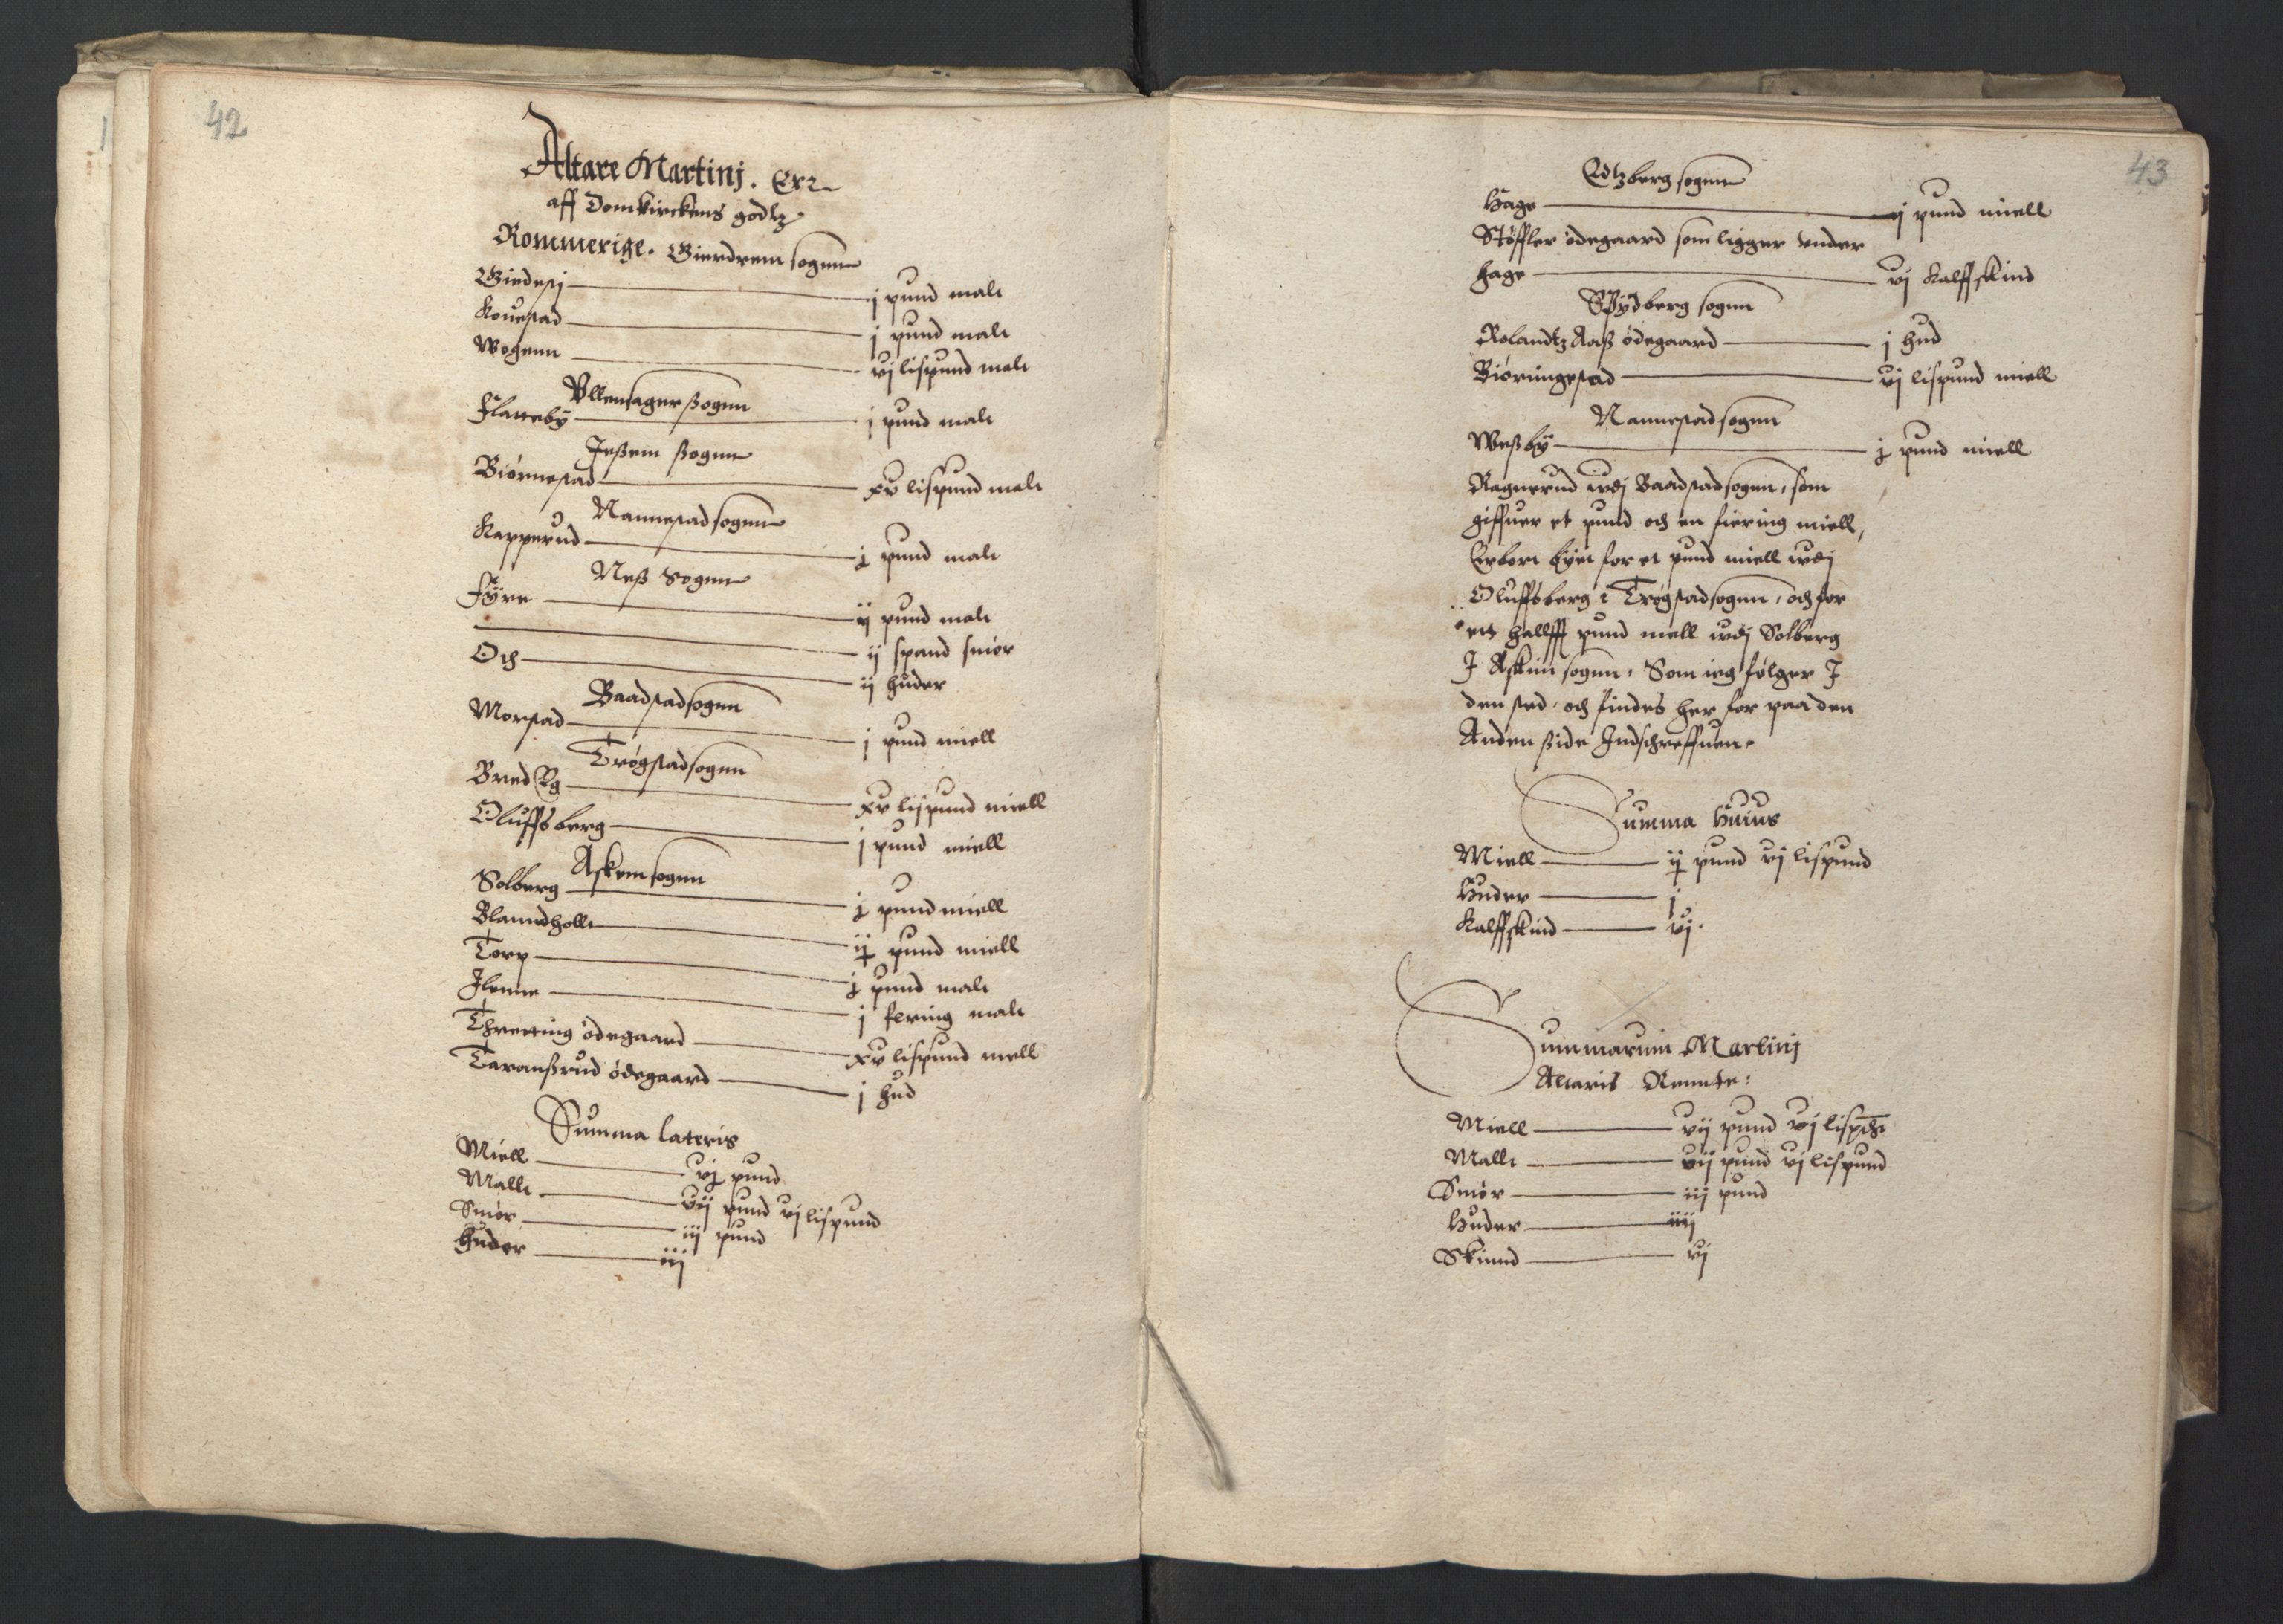 42
Altare Martinj. Er
aff Domkirckens godtz
Rommerige. Gierdrem sognn
Giedesj j pund malt
Kouestad j pund malt
Wogenn vj lispund malt
Vllensager ßognn
Flatteby j pund malt
Jeßem ßognn
Biørnestad xv lispund malt
Nannestad sognn
Kapperud j pund malt
Neß Sognn
Fyre ij pund malt
ij spand smør
Och ij huder
Baadstad sognn
Morstad j pund miell
Trøgstad sognn
Bred xv lispund miell
Oluffsberg j pund miell
Askem sognn
Solberg j pund miell
Blanndholtt ij pund miell
Torp j pund malt
Ilenne j fering malt
Thretting ødegaard xv lispund mell
Taranßrud ødegaard j hud
Summa lateris
Miell vj pund
Malltt vij pund vj lispund
Smør iij pund
Huder iij
43
Edtzberg sognn
Hage j pund miell
Støffler ødegaard som ligger vnder
Hage vj Kalffskind
Spydberg sognn
Rolandtz Aaß ødegaard j hud
Biørningstad vj lispund miell
Nannestad sognn
Weßby j pund miell
Ragnerud wdj Baadstad sognn, som
giffuer et pund och en fiering miell,
Er bort bytt for et pund miell wdj
Oluffsberg i Trøgstad sognn, och for
ett hallfft pund mell wdj Solberg
J Askim sognn. Som ieg følger J
den sted, och findes her for paa den
Anden ßide Indschreffuen.
Summa Huius
Miell ij pund vj lispund
Huder j
Kalffskind vj.
Summarum Martinj
Altaris Rennte:
Miell vij pund vj lispd
Malltt vij pund vj lispund
Smør iij pund
Huder iiij
Skinnd vj